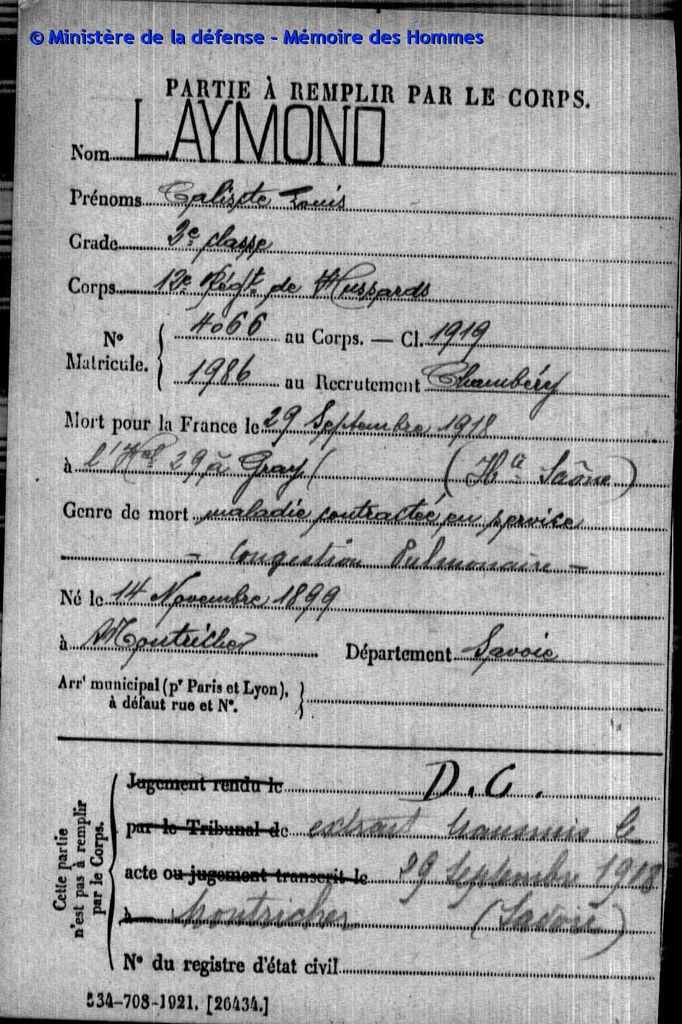 © Ministère de la défense - Mémoire des Hommes
PARTIE À REMPLIR PAR LE CORPS.
Nom LAYMOND
Prénoms Calixte Louis
Grade 2e classe
Corps 12e Régt de Hussards
No Matricule. { 4066 au Corps. — Cl. 1919
1986 au Recrutement Chambéry
Mort pour la France le 29 Septembre 1918
à l'Hal 29 à Gray ( (Hte Saône)
Genre de mort maladie contractée en service
- Congestion Pulmonaire -
Né le 14 Novembre 1899
à Montricher Département Savoie
Arrt municipal (pr Paris et Lyon), à défaut rue et No. }
Cette partie n'est pas à remplir par le Corps.
Jugement rendu le D.C.
par le Tribunal de extrait transmis le
acte ou jugement transcrit le 29 Septembre 1918
à Montricher (Savoie)
No du registre d'état civil
534-708-1921. [26434.]